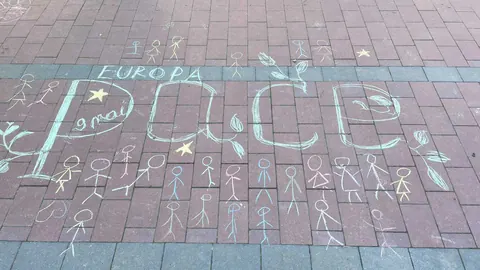 EUROPA
Pace
9 mai